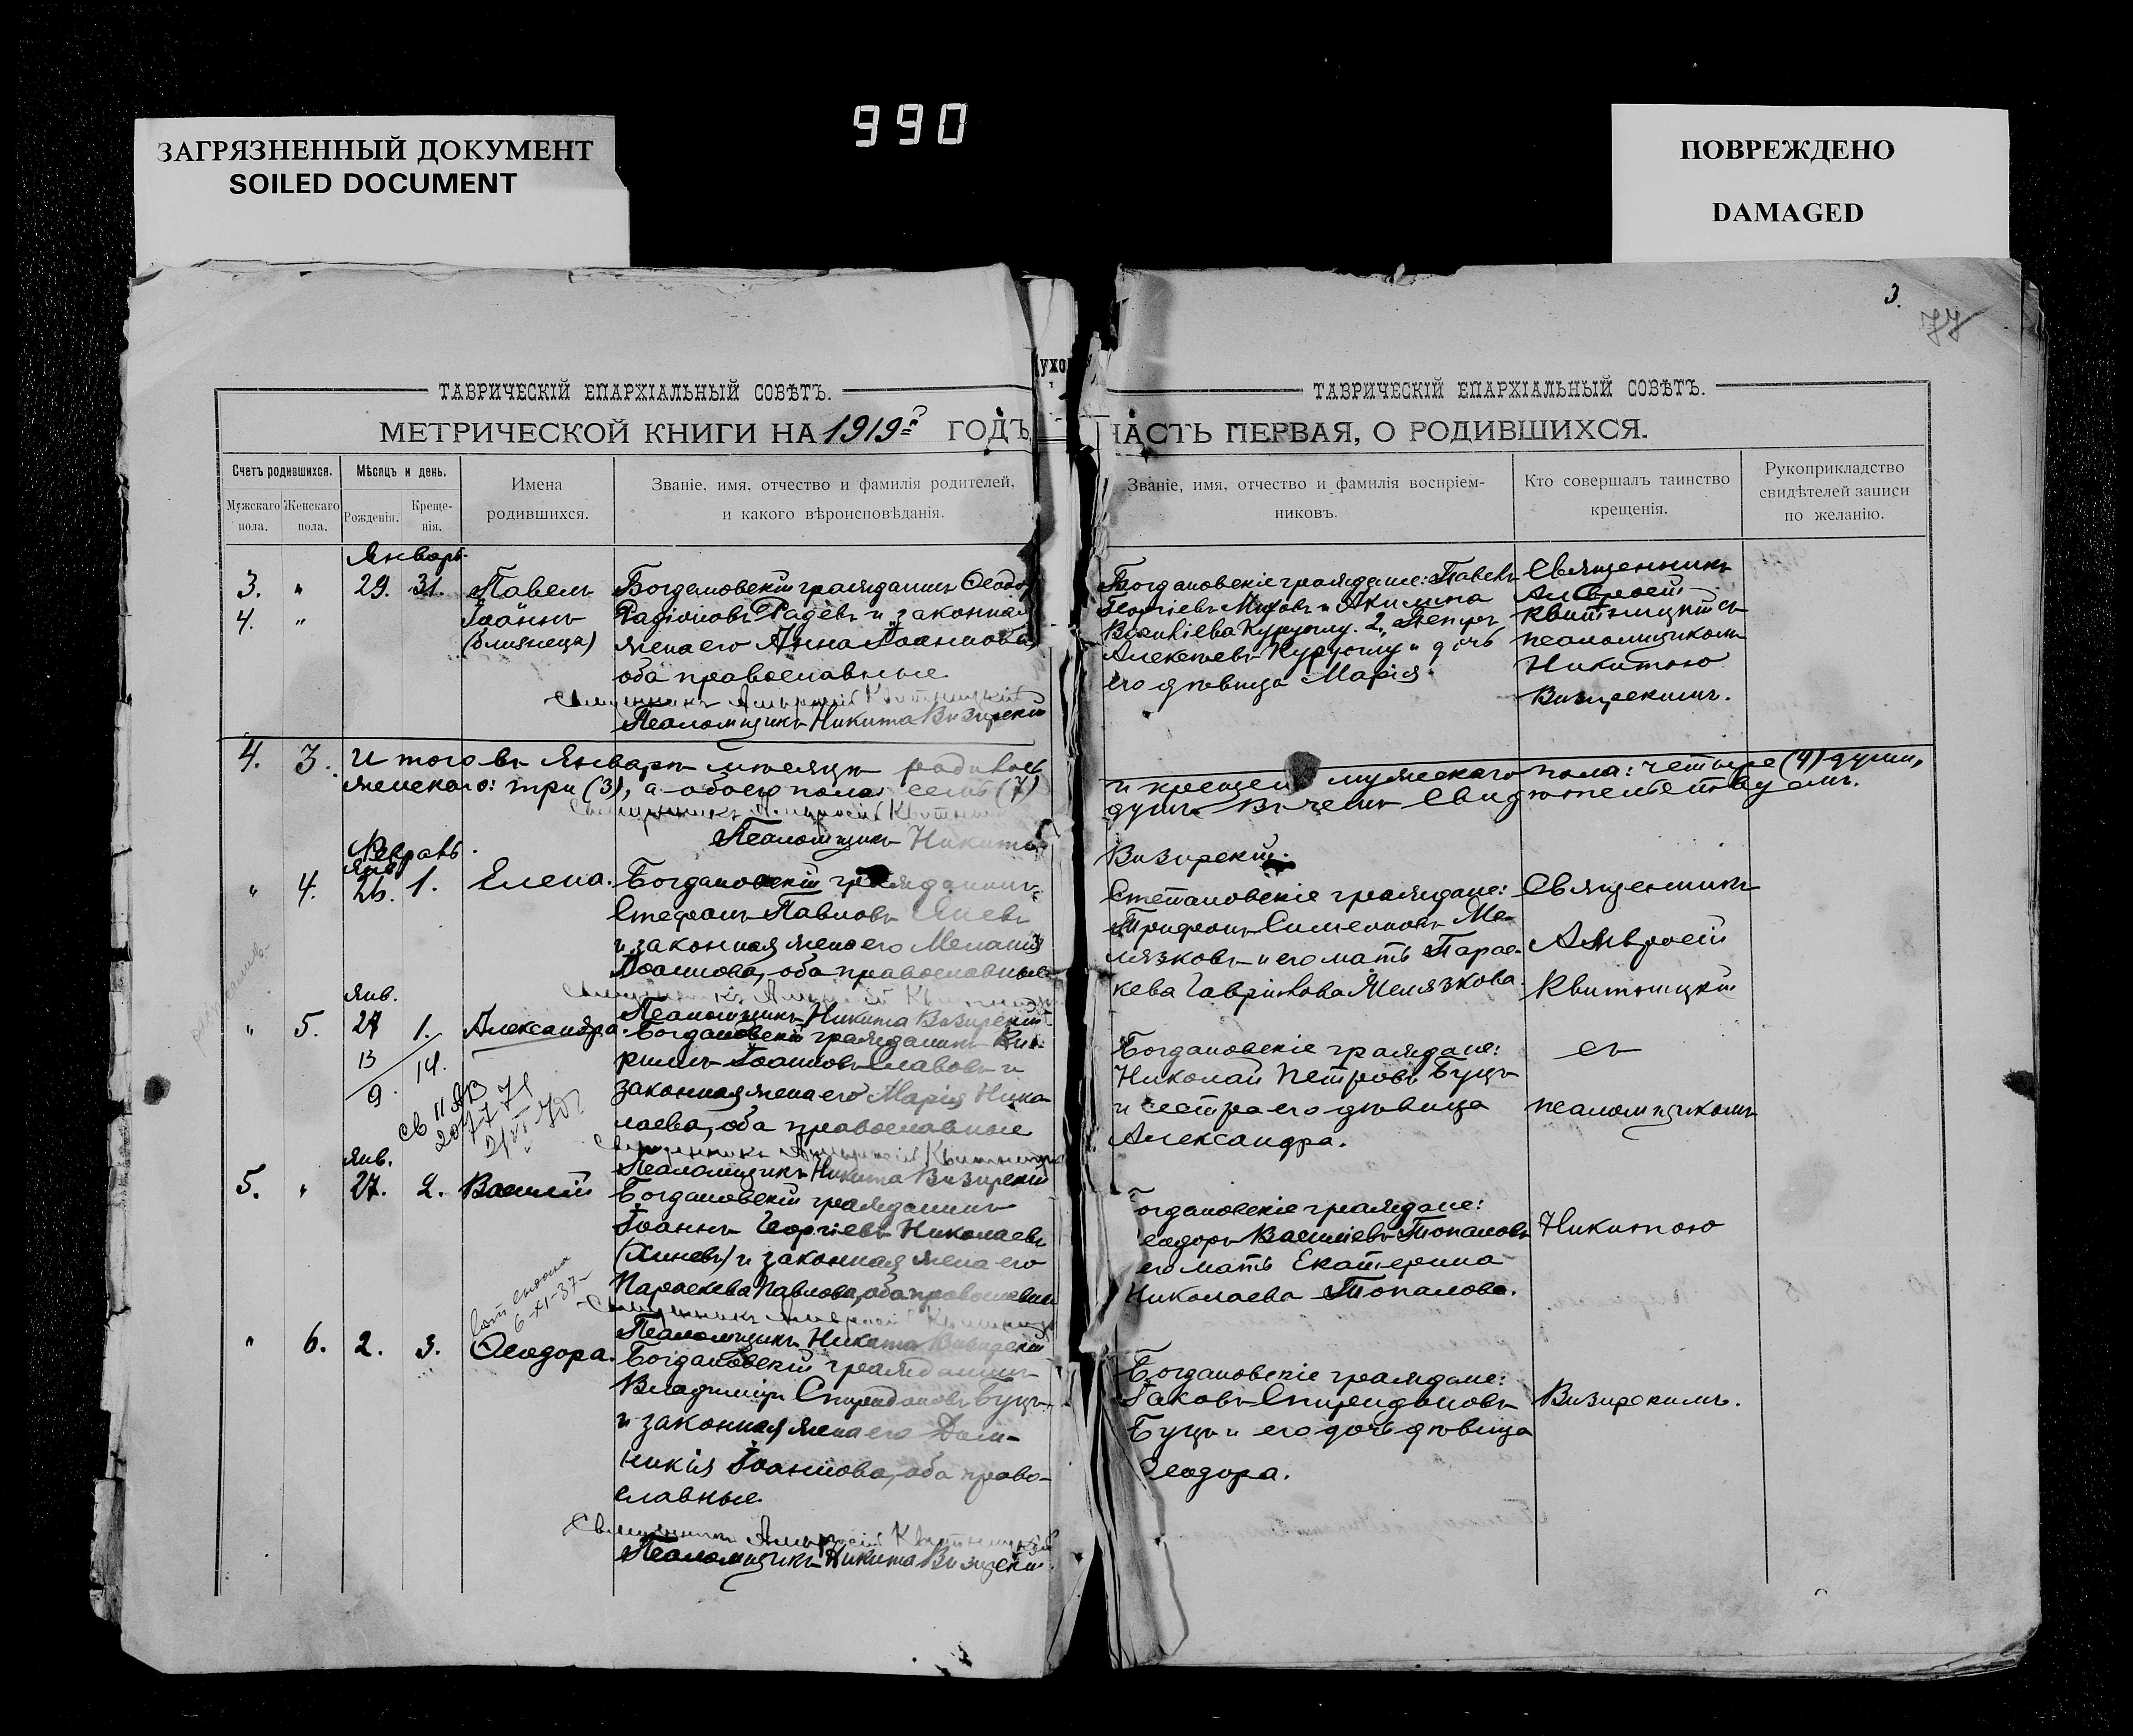 990
ЗАГРЯЗНЕННЫЙ ДОКУМЕНТ
SOILED DOCUMENT
ПОВРЕЖДЕНО
DAMAGED
3.
77
ТАВРИЧЕСКІЙ ЕПАРХІАЛЬНЫЙ СОВѢТЪ.
МЕТРИЧЕСКОЙ КНИГИ НА 1919 ГОДЪ
Счетъ родившихся.
Мѣсяцъ и день.
Мужскаго пола.
Женскаго пола.
Рожденія.
Креще-
нія.
Имена
родившихся.
Званіе, имя, отчество и фамилія родителей,
и какого вѣроисповѣданія.
Январь
3. " 29. 31. Павелъ
4. " Іоаннъ
(близнецы)
Богдановскій гражданинъ Ѳеодоръ
Радіоновъ Радевъ и законная
жена его Анна Іоаннова
оба православные
Священникъ Амвросій Квитницкій
Псаломщикъ Никита Визирскій
4. 3. Итого въ Январѣ мѣсяцѣ родилось
женскаго: три (3), а обоего пола семь (7)
Священникъ Амвросій
Псаломщикъ Никита
Февраль.
Янв.
" 4. 26. 1. Елена.
Богдановскій гражданинъ
Стефанъ Павловъ
и законная жена его Меланія
Іоаннова, оба православные
Священникъ Амвросій
Псаломщикъ Никита Визирскій
Янв.
" 5. 27 1. Александра.
13
9. 14.
Богдановскій гражданинъ Ки-
риллъ Іоанновъ Славовъ и
законная жена его Марія Нико-
лаева, оба православные
Священникъ Амвросій
Псаломщикъ Никита Визирскій
Янв.
5. " 27. 2. Василій
Богдановскій гражданинъ
Іоаннъ Георгіевъ Николаевъ
и законная жена его
Параскева Павлова, оба православные
Священникъ Амвросій
6-XI-37
Псаломщикъ Никита Визирскій
" 6. 2. 3. Ѳеодора.
Богдановскій гражданинъ
Владиміръ Спиридоновъ Буцъ
и законная жена его Дом-
никія Іоаннова, оба право-
славные.
Священникъ Амвросій Квитницкій
Псаломщикъ Никита Визирскій
ТАВРИЧЕСКІЙ ЕПАРХІАЛЬНЫЙ СОВѢТЪ.
ЧАСТЬ ПЕРВАЯ, О РОДИВШИХСЯ.
Званіе, имя, отчество и фамилія воспріем-
никовъ.
Кто совершалъ таинство
крещенія.
Рукоприкладство
свидѣтелей записи
по желанію.
Богдановскіе граждане: Павелъ
Георгіевъ и Акилина
2, Петръ
Алексѣевъ и дочь
его дѣвица Марія.
Священникъ
Амвросій
Квитницкій съ
псаломщикомъ
Никитою
Визирскимъ.
и крещено мужескаго пола: четыре (4) души,
душъ. Въ чемъ свидѣтельствуемъ.
Визирскій.
Степановскіе граждане:
Трифонъ Симеоновъ Же-
лязковъ и его мать Парас-
кева Гаврилова Желязкова.
Священникъ
Амвросій
Квитницкій
Богдановскіе граждане:
Николай Петровъ Буцъ
и сестра его дѣвица
Александра.
съ
псаломщикомъ
Богдановскіе граждане:
Ѳеодоръ Василіевъ Топаловъ
его мать Екатерина
Николаева Топалова.
Никитою
Богдановскіе граждане:
Іаковъ Спиридоновъ
Буцъ и его дочь дѣвица
Ѳеодора.
Визирскимъ.